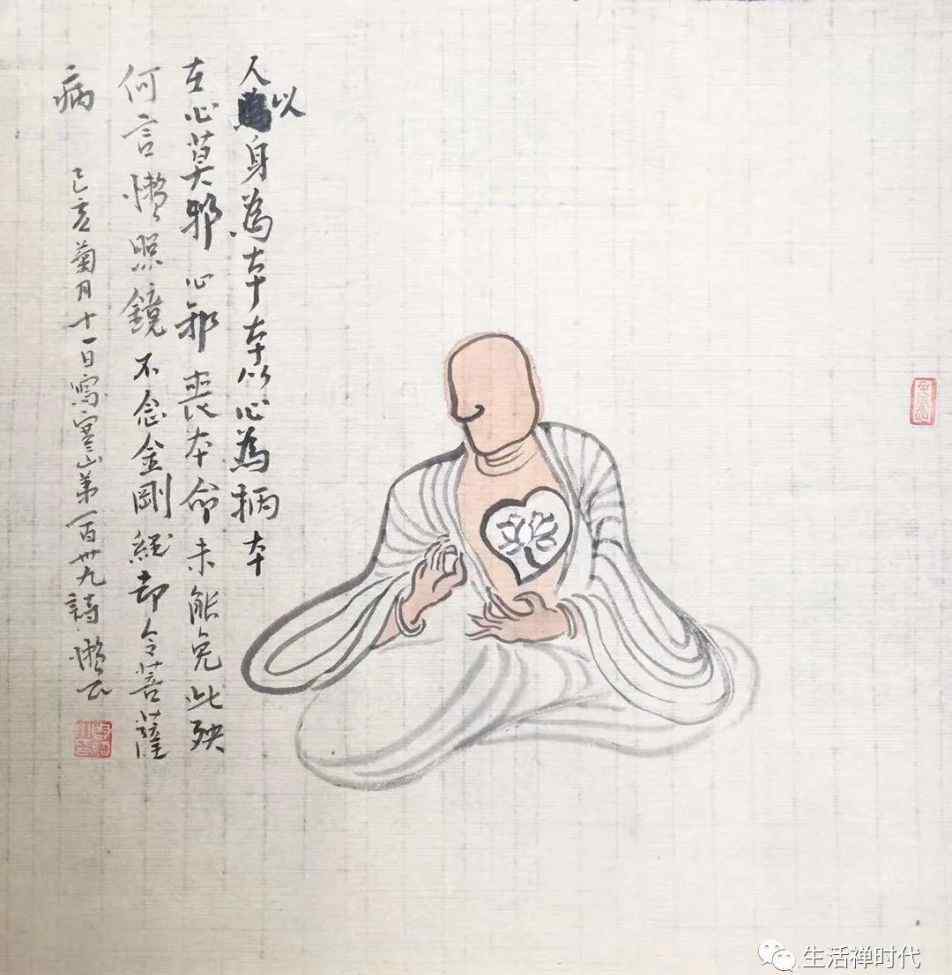 人以身為本本以心為柄本
在心莫邪心邪喪本命未能免此殃
何言懶照鏡不念金剛經却令菩薩
病 己亥菊月十一日寫寒山第一百卅九詩懶云
生活禅时代